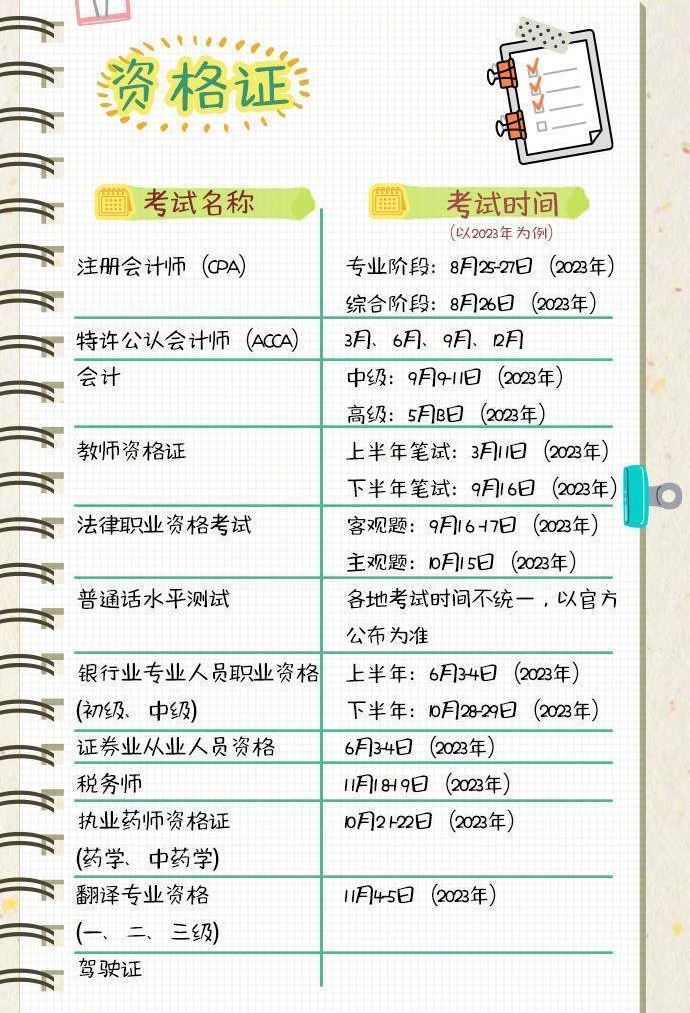 资格证
考试名称 考试时间
(以2023年为例)
注册会计师（CPA） 专业阶段：8月25-27日（2023年）
综合阶段：8月26日（2023年）
特许公认会计师（ACCA） 3月、6月、9月、12月
会计 中级：9月9-11日（2023年）
高级：5月13日（2023年）
教师资格证 上半年笔试：3月11日（2023年）
下半年笔试：9月16日（2023年）
法律职业资格考试 客观题：9月16-17日（2023年）
主观题：10月15日（2023年）
普通话水平测试 各地考试时间不统一，以官方
公布为准
银行业专业人员职业资格 上半年：6月3-4日（2023年）
(初级、中级) 下半年：10月28-29日（2023年）
证券业从业人员资格 6月3-4日（2023年）
税务师 11月18-19日（2023年）
执业药师资格证 10月21-22日（2023年）
(药学、中药学)
翻译专业资格 11月4-5日（2023年）
(一、二、三级)
驾驶证